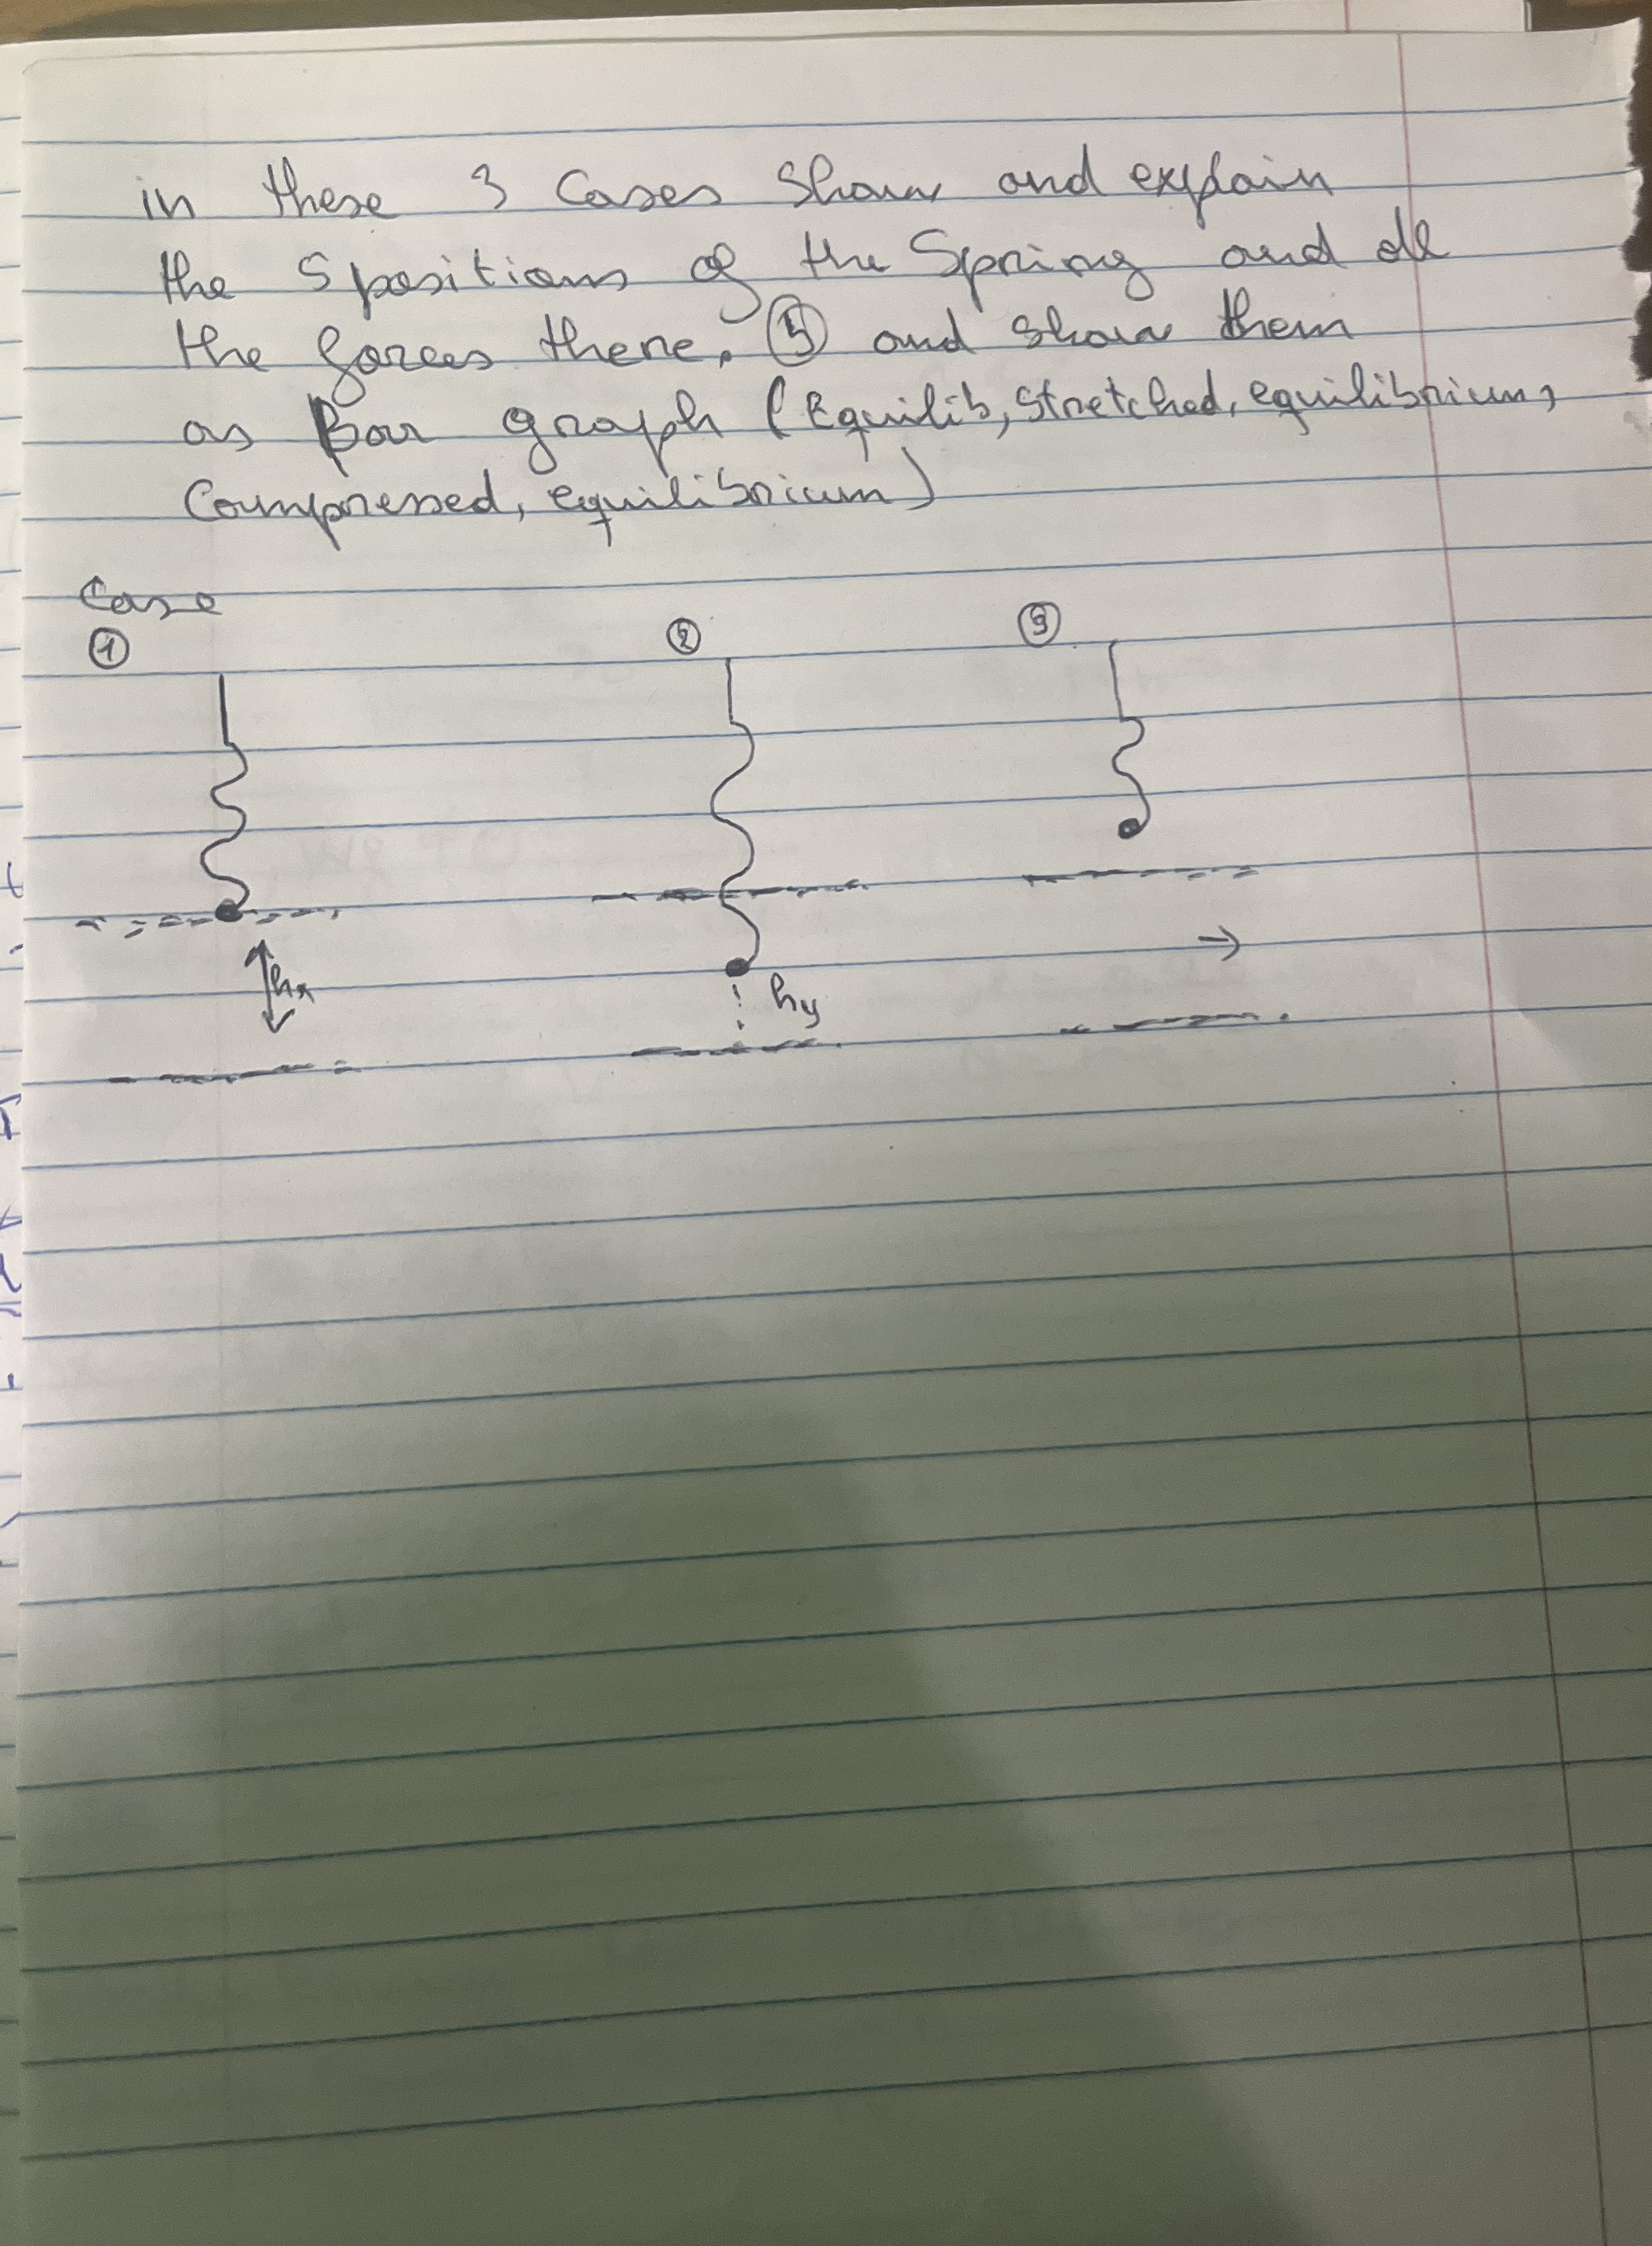 in these 3 Cases Show and explain
the 5 positions of the Spring and all
the forces there. 5 and show them
as Bar graph (Equilib, Stretched, equilibrium,
Compressed, equilibrium)
Case
1 2 3
hx
hy